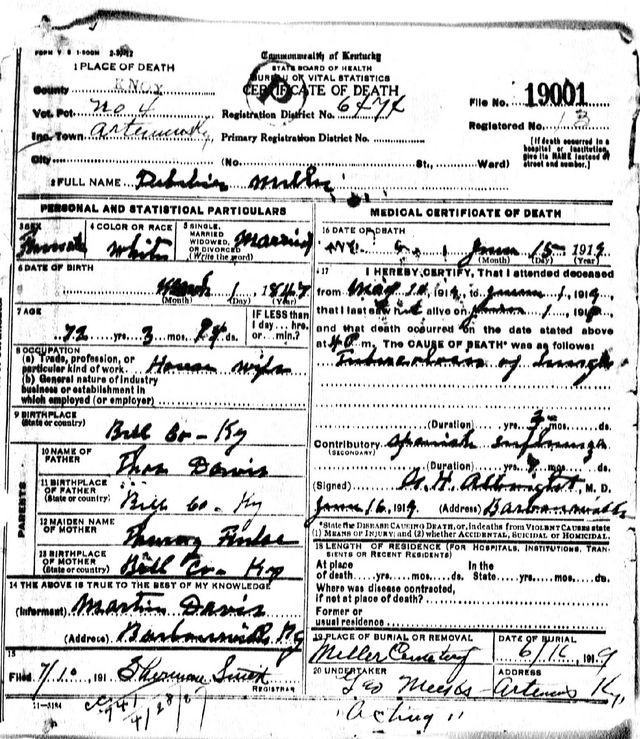 FORM V. S. 1-500M 2-27-12
1 PLACE OF DEATH
County KNOX
Vot. Pct. No 4
Inc. Town Artemus Ky
City
Commonwealth of Kentucky
STATE BOARD OF HEALTH
BUREAU OF VITAL STATISTICS
CERTIFICATE OF DEATH
Registration District No. 6474
Primary Registration District No.
(No. St., Ward)
File No. 19001
Registered No. 13
[If death occurred in a hospital or institution, give its NAME instead of street and number.]
2 FULL NAME Miller
PERSONAL AND STATISTICAL PARTICULARS
3 SEX Female
4 COLOR OR RACE White
5 SINGLE, MARRIED, WIDOWED, OR DIVORCED (Write the word) Married
6 DATE OF BIRTH
March 1 1847
(Month) (Day) (Year)
7 AGE
72 yrs. 3 mos. ds.
IF LESS than 1 day.... hrs. or min.?
8 OCCUPATION
(a) Trade, profession, or particular kind of work House wife
(b) General nature of industry business or establishment in which employed (or employer)
9 BIRTHPLACE
(State or country) Bell Co - Ky
PARENTS
10 NAME OF FATHER Thos Davis
11 BIRTHPLACE OF FATHER (State or country) Bell Co - Ky
12 MAIDEN NAME OF MOTHER
13 BIRTHPLACE OF MOTHER (State or country) Bell Co - Ky
14 THE ABOVE IS TRUE TO THE BEST OF MY KNOWLEDGE
(Informant) Martin Davis
(Address) Barbourville Ky
15
Filed 7/10, 191 Sherman Smith
REGISTRAR
11-3184
MEDICAL CERTIFICATE OF DEATH
16 DATE OF DEATH
June 15 1919
(Month) (Day) (Year)
17 I HEREBY CERTIFY, That I attended deceased
from May 10, 1919, to June 1, 1919,
that I last saw h alive on 1, 191
and that death occurred on the date stated above
at 4 P m. The CAUSE OF DEATH* was as follows:
Tuberculosis of lungs
(Duration) yrs. 3 mos. ds.
Contributory Spanish
(SECONDARY)
(Duration) yrs. mos. ds.
(Signed) Albright, M. D.
June 16, 1919 (Address) Barbourville
*State the DISEASE CAUSING DEATH, or, in deaths from VIOLENT CAUSES state
(1) MEANS OF INJURY; and (2) whether ACCIDENTAL, SUICIDAL or HOMICIDAL.
18 LENGTH OF RESIDENCE (FOR HOSPITALS, INSTITUTIONS, TRANSIENTS OR RECENT RESIDENTS)
At place of death yrs. mos. ds. In the State yrs. mos. ds.
Where was disease contracted, if not at place of death?
Former or usual residence
19 PLACE OF BURIAL OR REMOVAL
Miller Cemetery
DATE OF BURIAL
6/16, 1919
20 UNDERTAKER
Geo Meeks
ADDRESS
Artemus Ky.
"Acting"